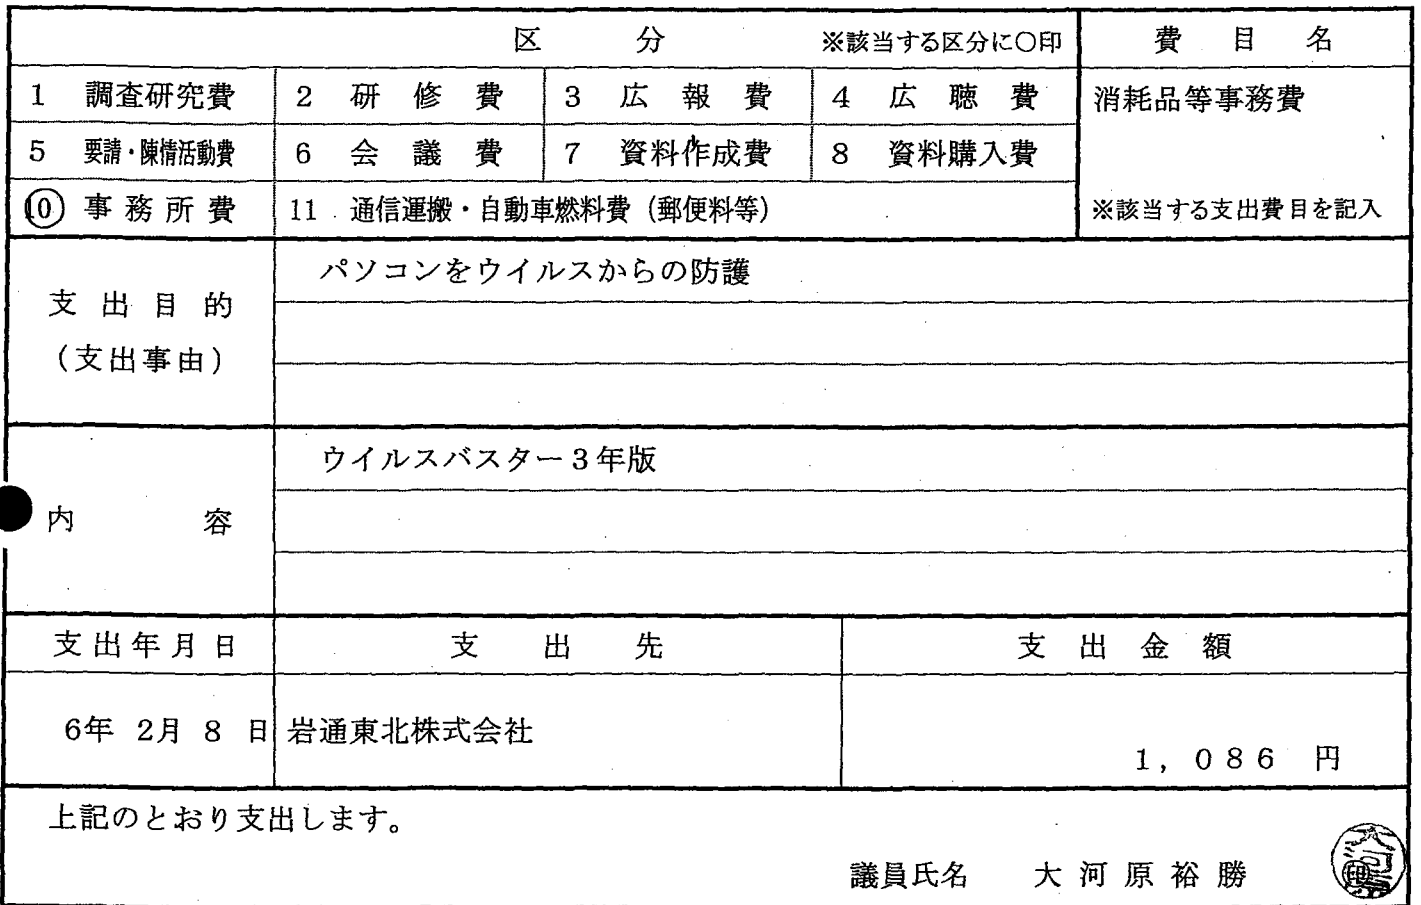 区 分 ※該当する区分に○印 費 目 名
1 調査研究費 2 研 修 費 3 広 報 費 4 広 聴 費 消耗品等事務費
5 要請・陳情活動費 6 会 議 費 7 資料作成費 8 資料購入費
10 事 務 所 費 11 通信運搬・自動車燃料費（郵便料等） ※該当する支出費目を記入
支 出 目 的
（支出事由）
パソコンをウイルスからの防護
内 容
ウイルスバスター３年版
支 出 年 月 日 支 出 先 支 出 金 額
6年 2月 8 日 岩通東北株式会社 1, 086 円
上記のとおり支出します。
議員氏名 大 河 原 裕 勝